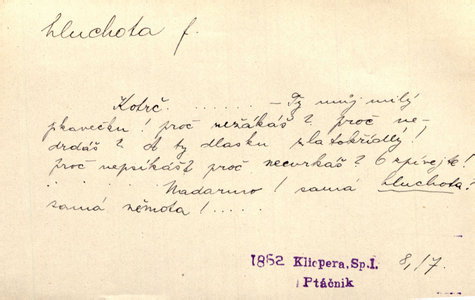 hluchota f.
Kotrč. . . . . . . . – Ty můj milý
pkavečku! proč nežákáš? proč ne-
drdáš? A ty dlasku zlatokřídlý!
proč nepsíkáš? proč necvrkáš? O zpívejte!
. . . . . . . . Nadarmo! samá hluchota!
samá němota! . . . .
1862 Klicpera, Sp.I. 8,/7.
Ptáčník